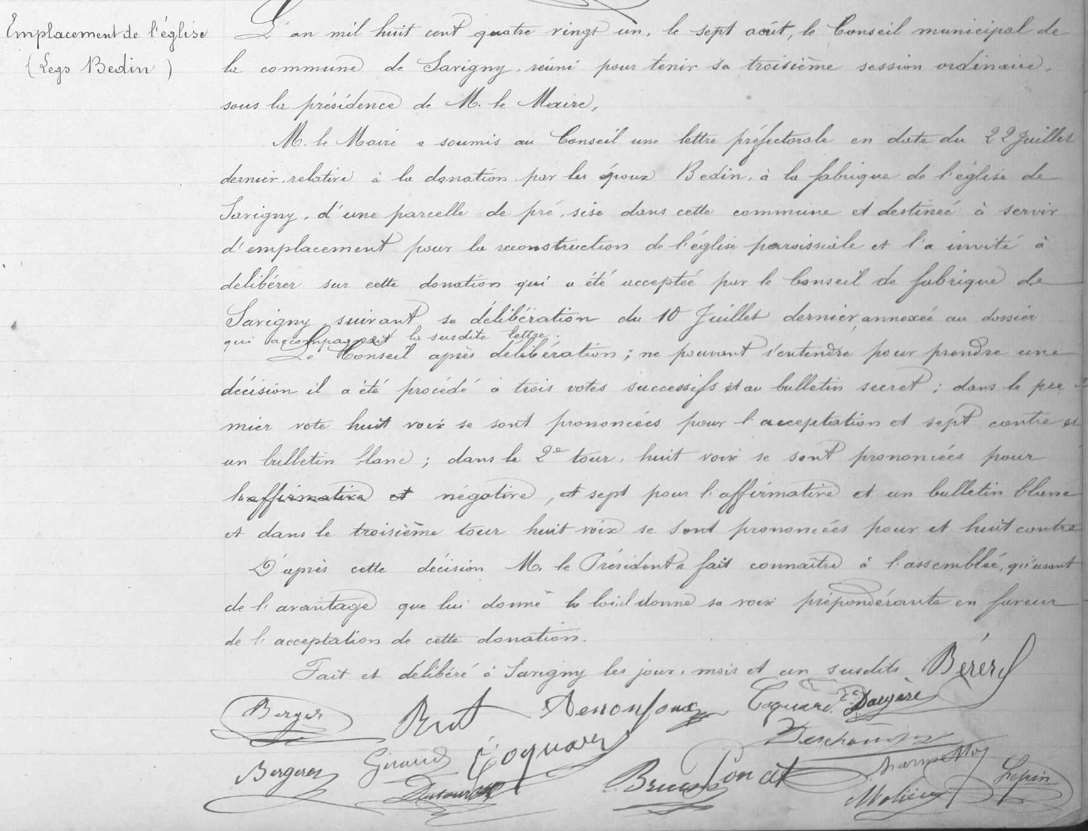 Emplacement de l'église
(Legs Bedin)
L'an mil huit cent quatre vingt un, le sept août, le Conseil municipal de
la commune de Savigny, réuni pour tenir sa troisième session ordinaire,
sous la présidence de M. le Maire,
M. le Maire a soumis au Conseil une lettre préfectorale en date du 22 Juillet
dernier, relative à la donation par les époux Bedin, à la fabrique de l'église de
Savigny, d'une parcelle de pré, sise dans cette commune et destinée à servir
d'emplacement pour la reconstruction de l'église paroissiale et l'a invité à
délibérer sur cette donation qui a été acceptée par le Conseil de fabrique de
Savigny suivant sa délibération du 10 Juillet dernier, annexée au dossier
qui accompagnait la susdite lettre.
Le Conseil après délibération; ne pouvant s'entendre pour prendre une
décision il a été procédé à trois votes successifs et au bulletin secret; dans le pre
mier vote huit voix se sont prononcées pour l'acceptation et sept contre et
un bulletin blanc; dans le 2e tour, huit voix se sont prononcées pour
l'affirmative et négative, et sept pour l'affirmative et un bulletin blanc
et dans le troisième tour huit voix se sont prononcées pour et huit contre
D'après cette décision M. le Président a fait connaître à l'assemblée, qu'usant
de l'avantage que lui donne la loi, il donne sa voix prépondérante en faveur
de l'acceptation de cette donation.
Fait et délibéré à Savigny les jour, mois et an susdits
Berger Brut Coquard
Giraud Coquard
Poncet Molière Lépin